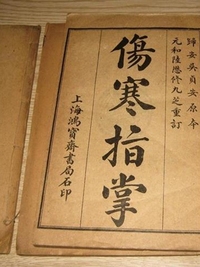 歸安吳貞安原本
元和陸懋修九芝重訂
傷寒指掌
上海鴻寶齋書局石印